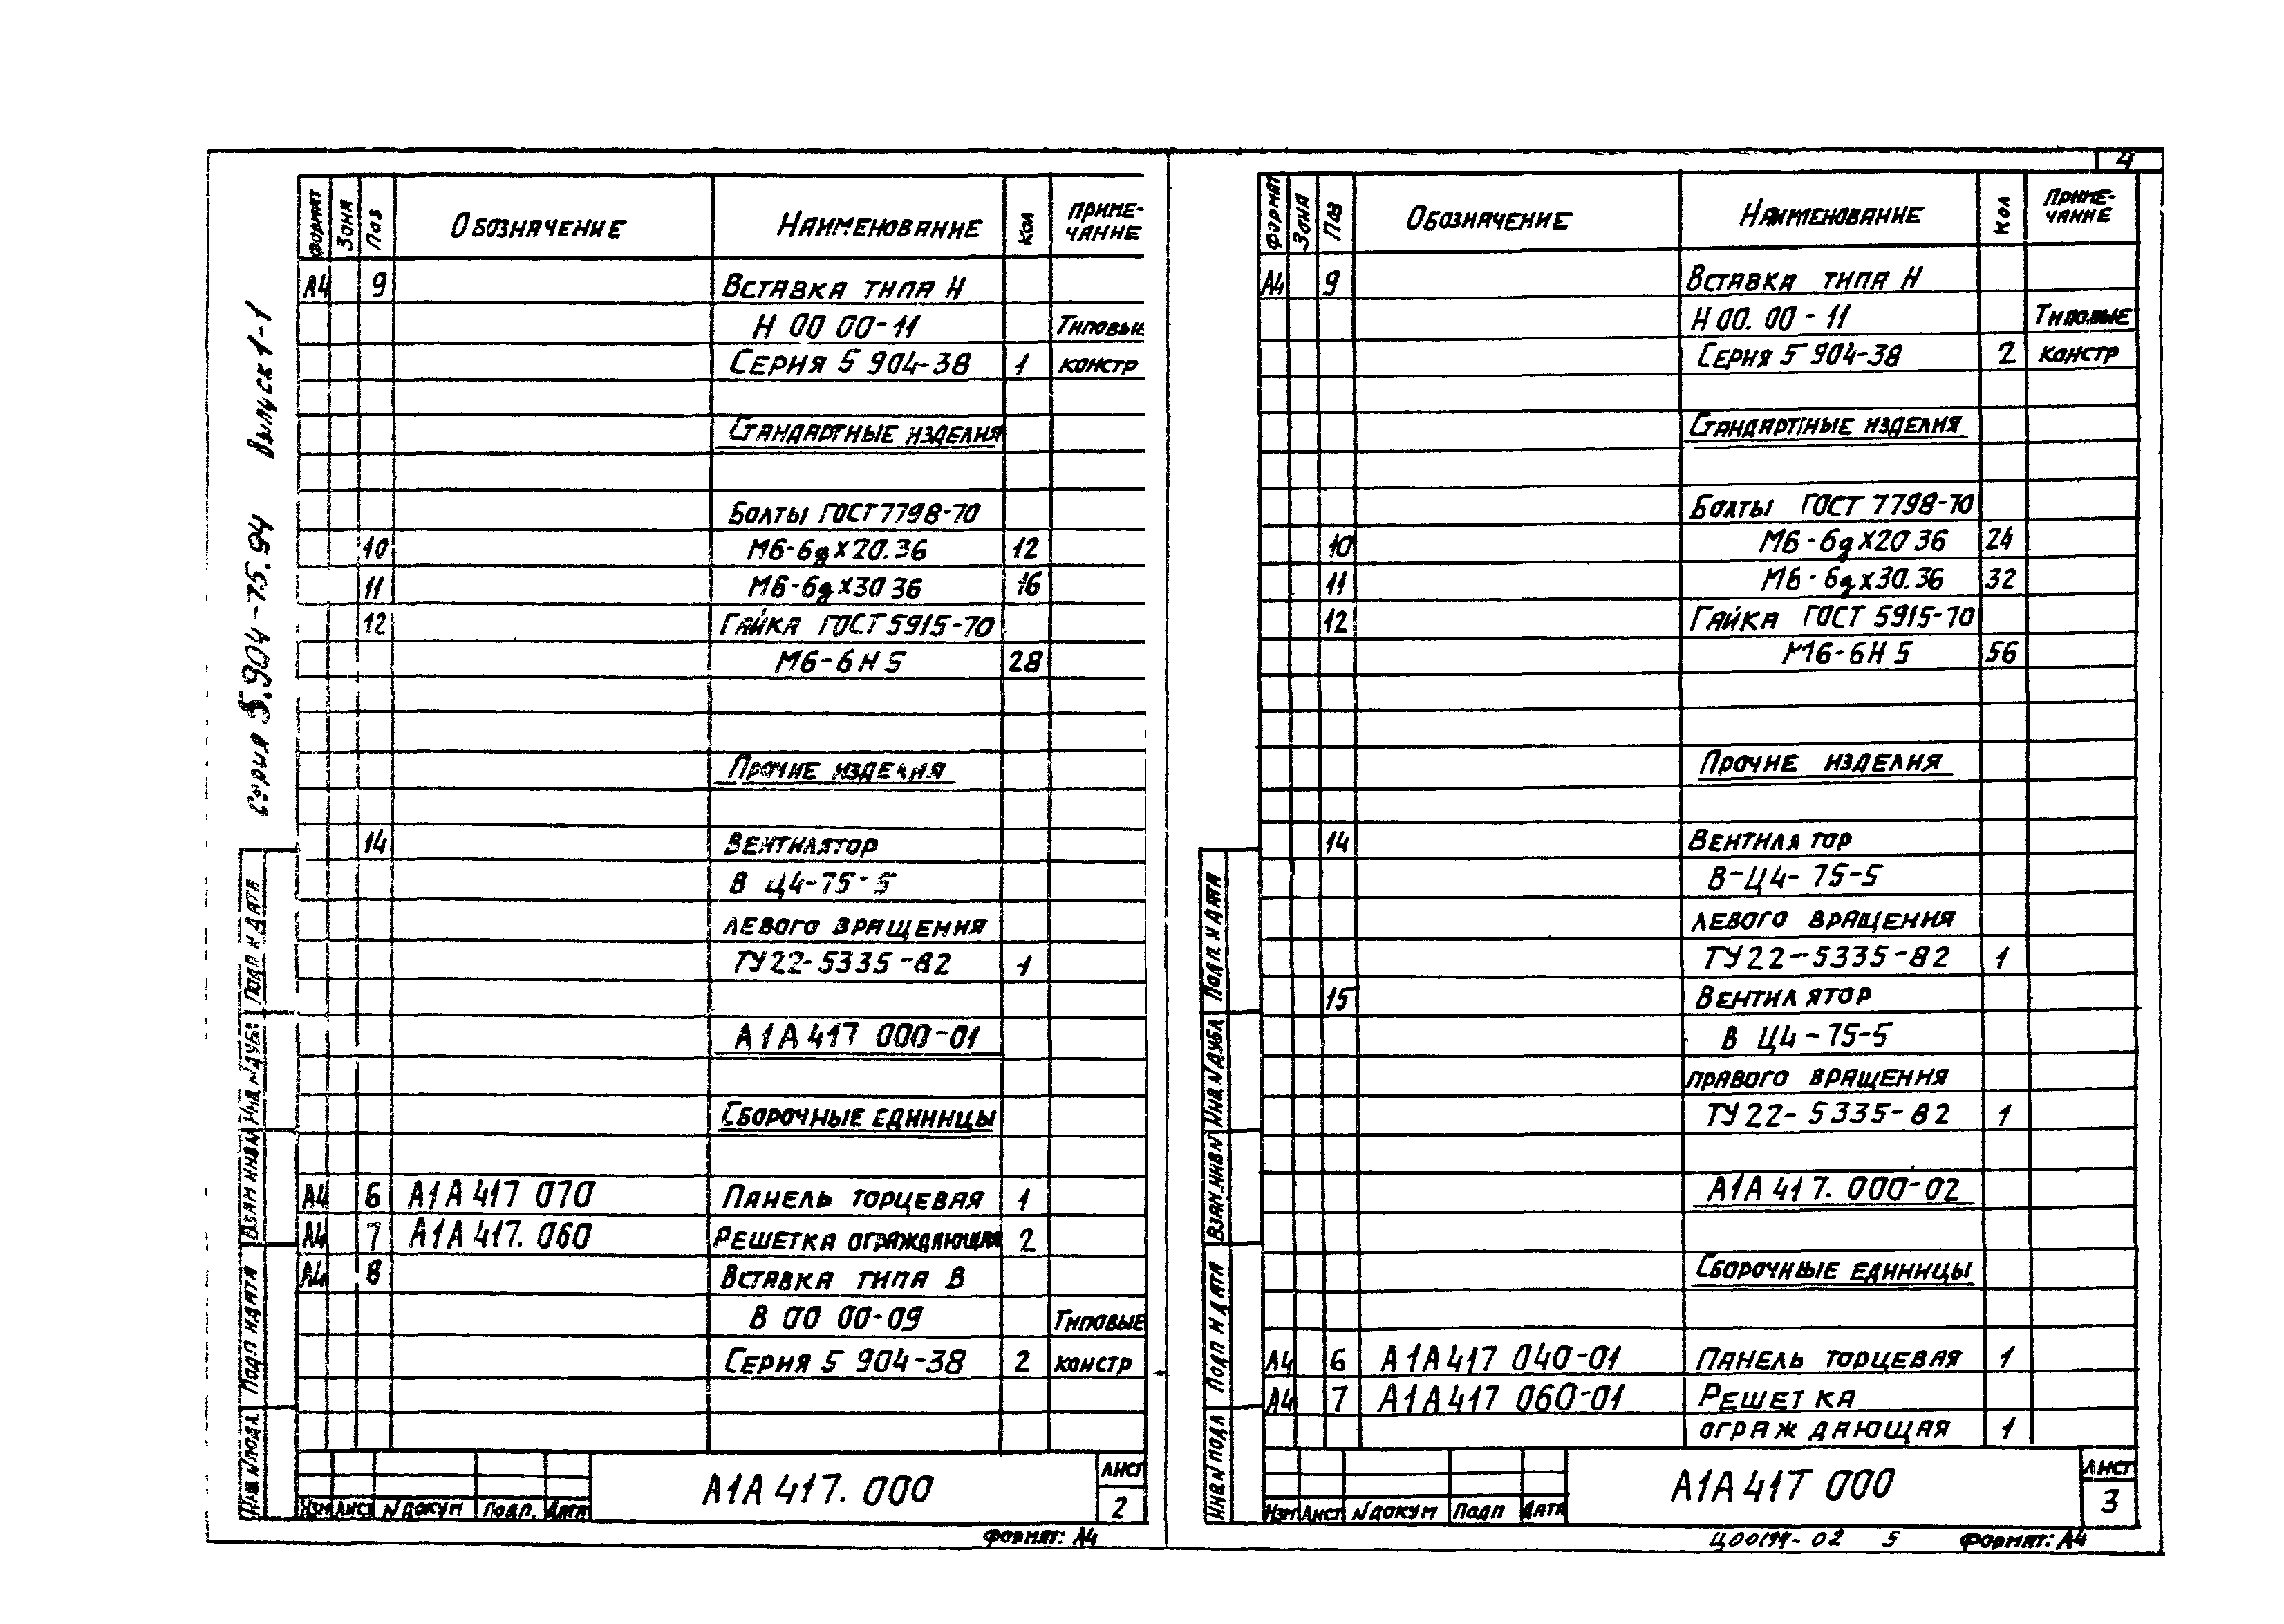 4
Серия 5.904-75.94 Выпуск 1-1
Формат Зона Поз Обозначение Наименование Кол Приме-
чание
А4 9 Вставка типа Н
Н 00 00-11 Типовые
Серия 5 904-38 1 констр
Стандартные изделия
Болты ГОСТ 7798-70
10 М6-6gх20.36 12
11 М6-6gх30 36 16
12 Гайка ГОСТ 5915-70
М6-6Н 5 28
Прочие изделия
14 Вентилятор
В Ц4-75-5
левого вращения
ТУ22-5335-82 1
А1А 417 000-01
Сборочные единицы
А4 6 А1А 417 070 Панель торцевая 1
А4 7 А1А 417. 060 Решетка ограждающая 2
А4 8 Вставка типа В
В 00 00-09 Типовые
Серия 5 904-38 2 констр
Инв.№подл Подп и дата Взам инв№ Инв №дубл Подп и дата
Изм Лист №докум Подп. Дата
А1А 417. 000
Лист
2
Формат: А4
Формат Зона Поз Обозначение Наименование Кол Приме-
чание
А4 9 Вставка типа Н
Н 00. 00-11 Типовые
Серия 5 904-38 2 констр
Стандартные изделия
Болты ГОСТ 7798-70
10 М6-6gх20 36 24
11 М6-6gх30.36 32
12 Гайка ГОСТ 5915-70
М6-6Н 5 56
Прочие изделия
14 Вентилятор
В-Ц4-75-5
левого вращения
ТУ22-5335-82 1
15 Вентилятор
В Ц4-75-5
правого вращения
ТУ22-5335-82 1
А1А 417. 000-02
Сборочные единицы
А4 6 А1А 417 040-01 Панель торцевая 1
А4 7 А1А 417 060-01 Решетка
ограждающая 1
Инв№подл Подп и дата Взам.инв№ Инв №дубл Подп.и дата
Изм Лист №докум Подп Дата
А1А 417 000
Лист
3
02 5 Формат: А4